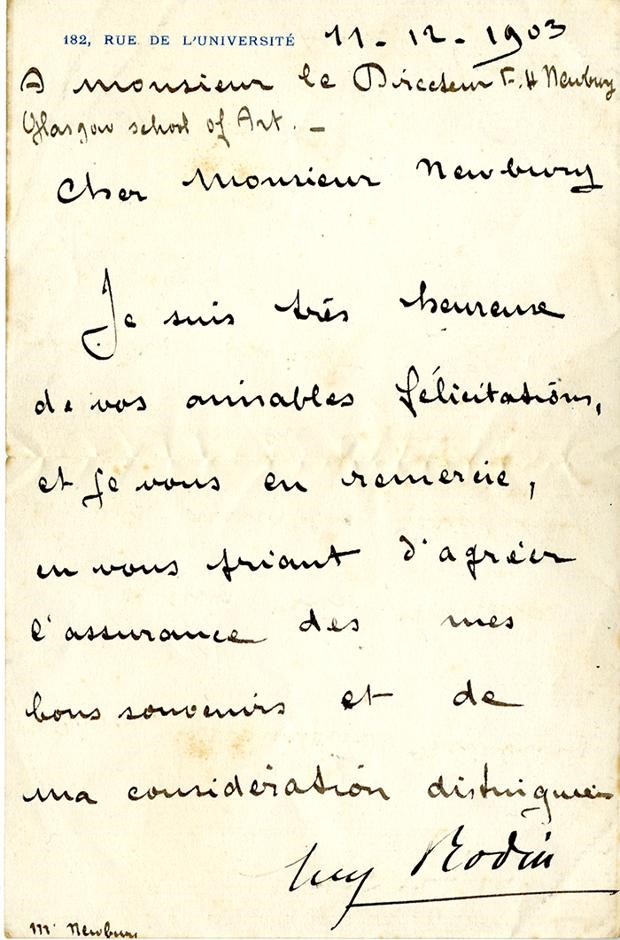 182, RUE DE L'UNIVERSITÉ 11-12-1903
A monsieur le Directeur F. H Newbury
Glasgow school of Art. _
Cher Monsieur Newbury
Je suis très heureuse
de vos aimables félicitations,
et je vous en remercie,
en vous priant d'agréer
l'assurance des mes
bons souvenirs et de
ma considération distinguée
Aug Rodin
Mr Newbury